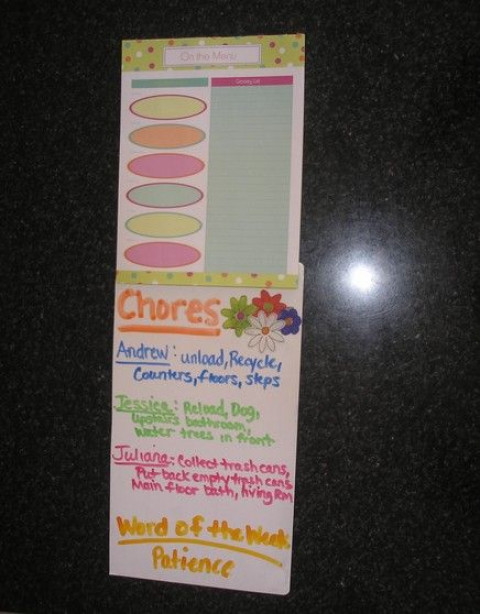 On the Menu
Grocery List
Chores
Andrew: unload, Recycle,
Counters, floors, steps
Jessica: Reload, Dog,
Upstairs bathroom,
Water trees in front
Juliana: Collect trash cans,
Put back empty trash cans
Main floor bath, living Rm
Word of the Week
Patience